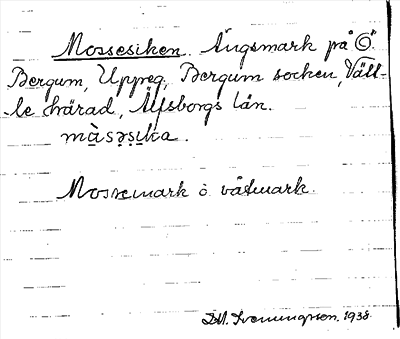 Mossesiken. Ängsmark på Ö.
Bergum, Uppreg, Bergum socken, Vätt-
le härad, Älfsborgs län.
màsəsika.
Mossemark o. våtmark.
1938